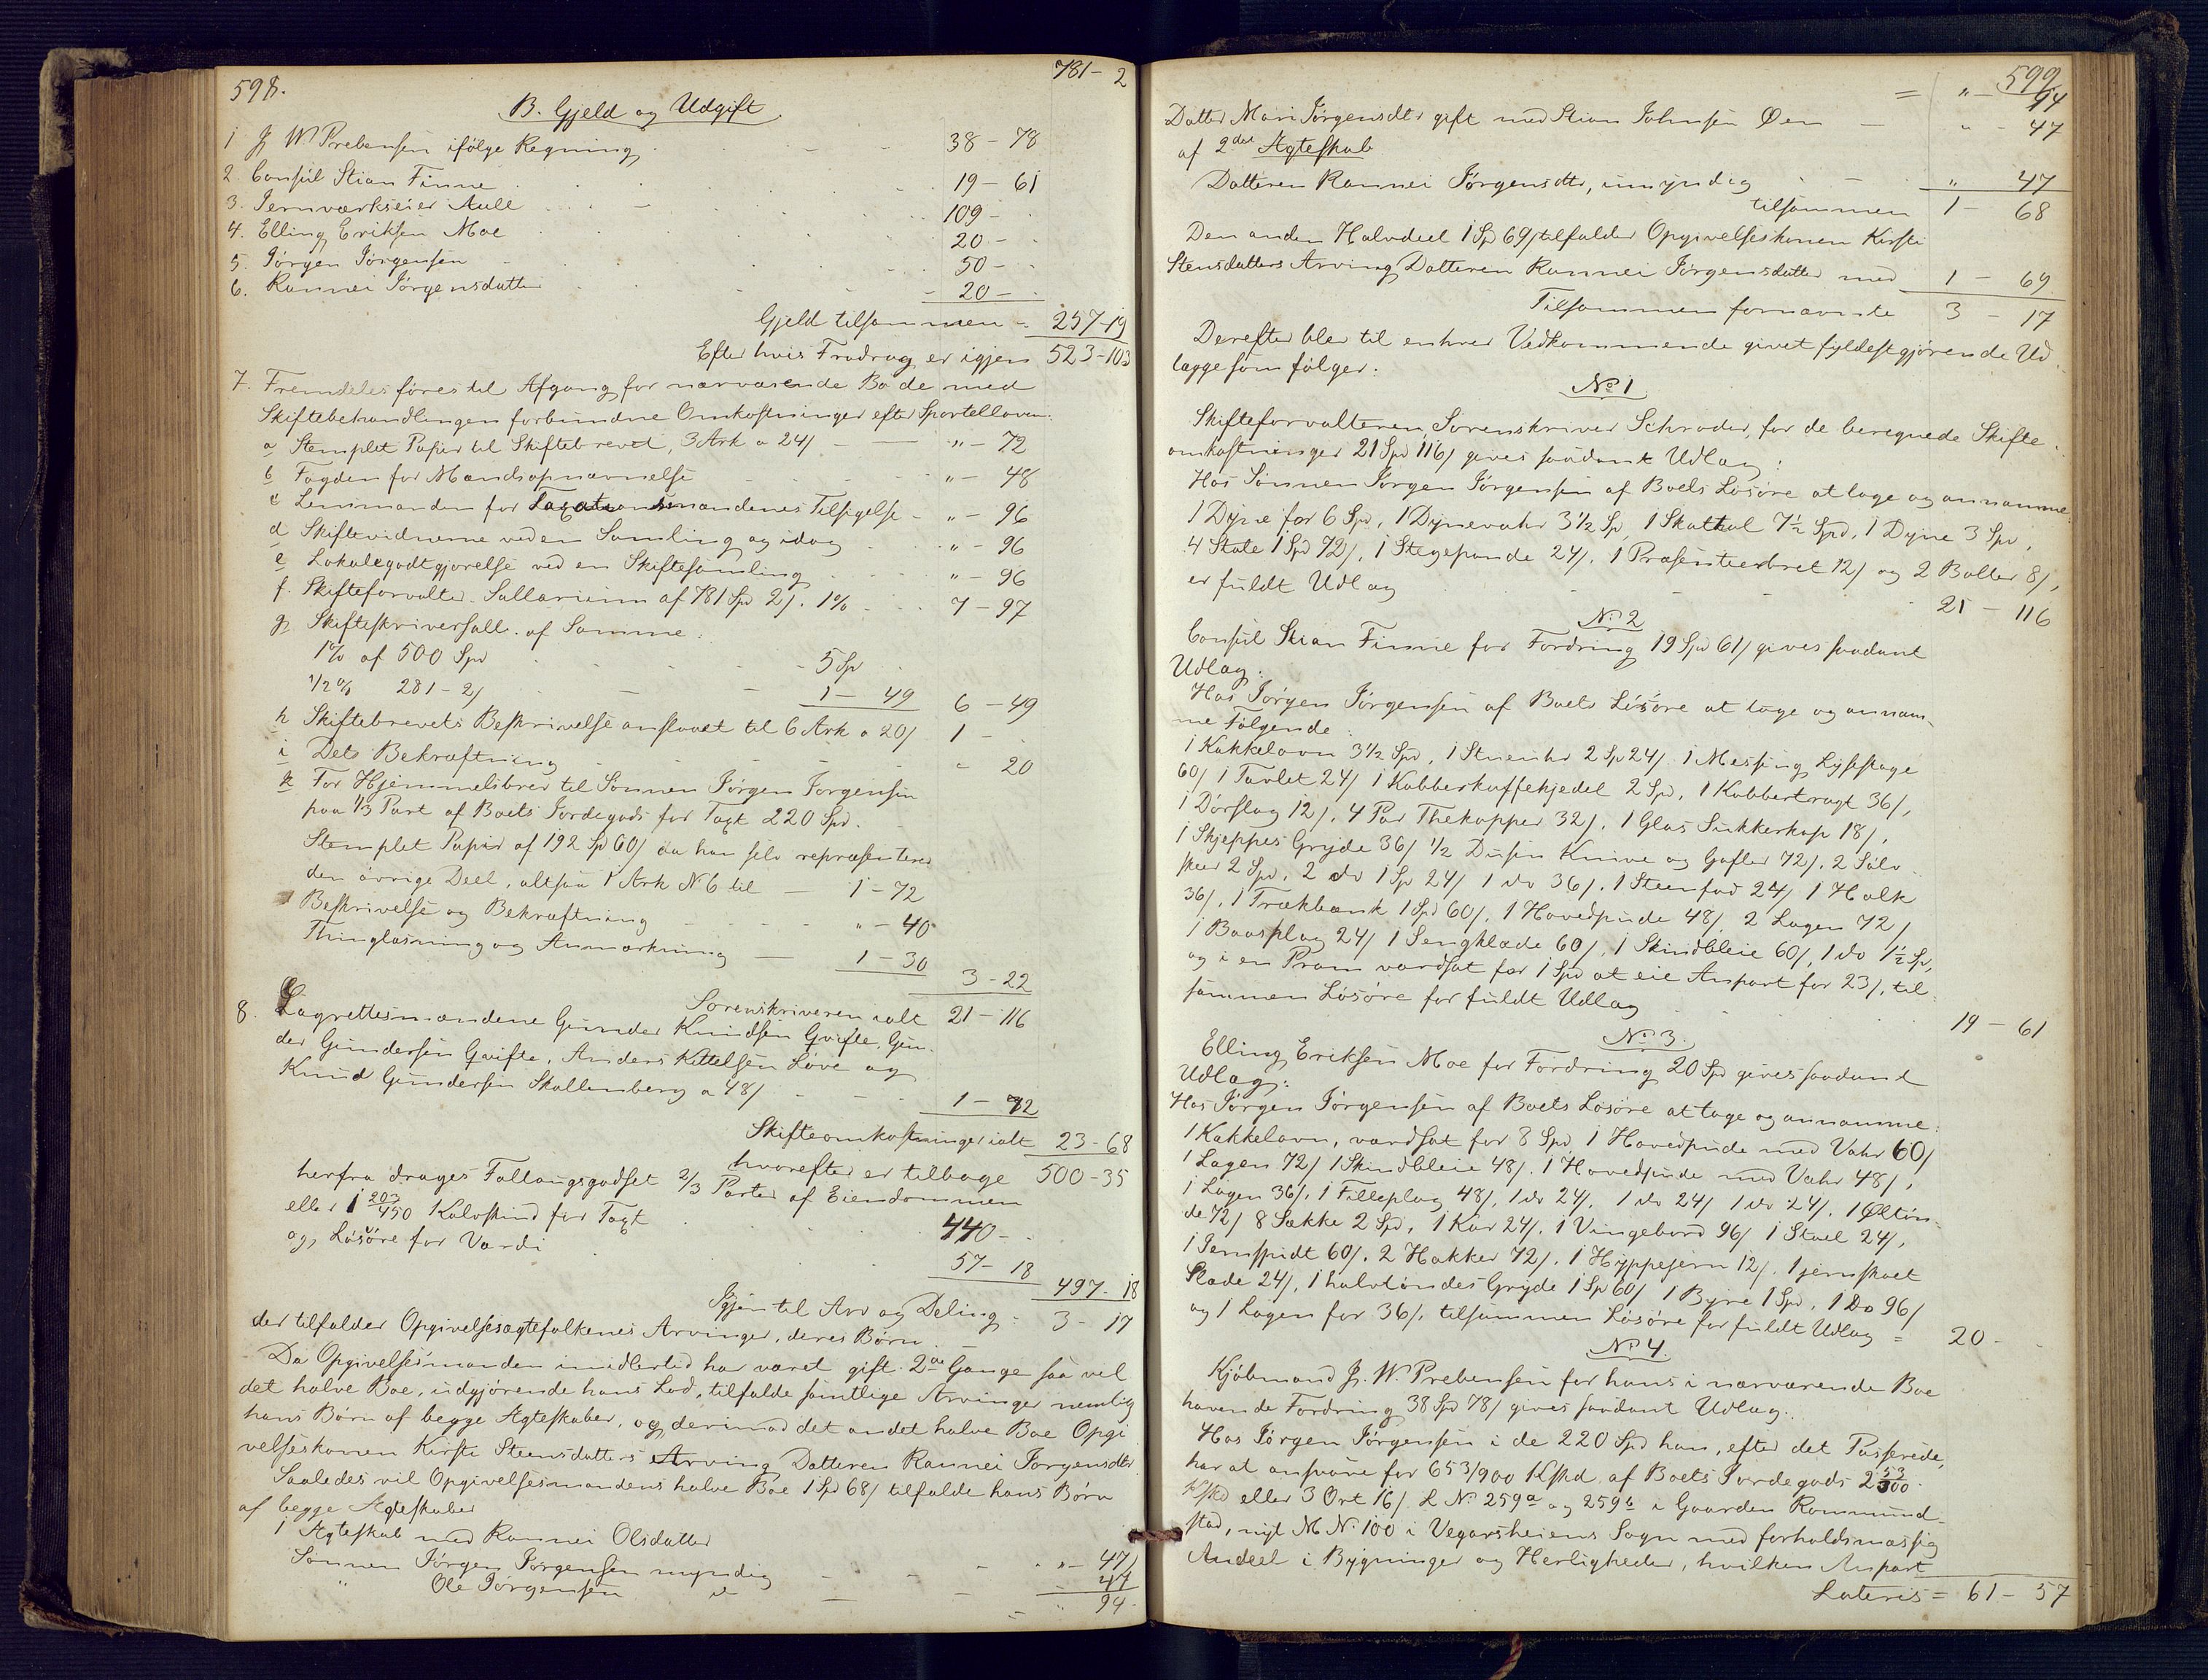 598.
781 - 2
B. Gjeld og Udgift
1 J. W. Prebensen ifølge Regning 38 - 78
2. Consul Stian Finne 19 - 61
3. Jernværkseier Aall 109 -
4. Elling Eriksen Moe 20 -
5. Jørgen Jørgensen 50 -
6. Rannei Jørgensdatter 20 -
Gjeld tilsammen - 257-19
Efter hvis Fradrag er igjen 523-103
7. Fremdeles føres til Afgang for nærværende Bo de med
Skiftebehandlingen forbundne Omkostninger efter Sportelloven:
a Stemplet Papir til Skiftebrevet, 3 Ark a 24/ " - 72
b Fogden for Mandsopnævnelse " - 48
c Lensmanden for Taxationsmændenes Tilsigelse - " - 96
d Skiftevidnerne ved en Samling og idag " - 96
e Lokalegodtgjørelse ved en Skiftesamling " - 96
f. Skifteforvalter-Sallarium af 781 Spd 2/. 1% 7 - 97
g Skifteskriversall. af Samme:
1% af 500 Spd 5 Sp
1/2% 281 - 2/ 1 - 49 6 - 49
h Skiftebrevets Beskrivelse anslaaet til 6 Ark a 20/ 1 -
i Dets Bekræftning " 20
k For Hjemmelsbrev til Sønnen Jørgen Jørgensen
paa 1/3 Part af Boets Jordegods for Taxt 220 Spd.
Stemplet Papir af 192 Sp 60/ da han selv repræsenterer
den øvrige Deel, altsaa 1 Ark No 6 til 1 - 72
Beskrivelse og Bekræftning " - 40
Thinglæsning og Anmærkning 1 - 30
3 - 22
Sorenskriveren ialt 21 - 116
8. Lagrettesmændene Gunder Knudsen Qvifte, Gun-
der Gundersen Qvifte, Anders Kittelsen Løve og
Knud Gundersen Skollenberg a 48/ 1 - 72
Skifteomkostninger ialt 23 - 68
hvorefter er tilbage 500 - 35
herfra drages Fallangsgodset 2/3 Parter af Eiendommen
eller 1 203/450 Kalvskind for Taxt 440 -
og Løsøre for Værdi 57 - 18
497. 18
Igjen til Arv og Deling - 3 - 17
der tilfalder Opgivelsesægtefolkenes Arvinger, deres Børn.
Da Opgivelsesmanden imidlertid har været gift 2de Gange saa vel
det halve Boe, udgjørende hans Lod, tilfalde samtlige Arvinger nemlig
hans Børn af begge Ægteskaber, og derimod det andet halve Boe Opgi
velseskonen Kirsti Steensdatters Arving Datteren Rannei Jørgensdtr
Saaledes vil Opgivelsesmandens halve Boe 1 Spd 68/ tilfalde hans Børn
af begge Ægteskaber
i Ægteskab med Rannei Olsdatter
Sønnen Jørgen Jørgensen myndig " - 47/
" Ole Jørgensen d - 47
= " 94
599
= " - 94
Datter Mari Jørgensdtr gift med Stian Johnsen Øen - " - 47
af 2det Ægteskab
Datteren Rannei Jørgensdtr, umyndig - " 47
tilsammen 1 - 68
Den anden Halvdeel 1 Sp 69/ tilfalder Opgivelseskonen Kirsti
Stensdatters Arving Datteren Rannei Jørgensdatter med 1 - 69
Tilsammen fornævnte 3 - 17
Derefter blev til enhver Vedkommende givet fyldestgjørende Ud
lægge som følger:
No 1
Skifteforvalteren, Sorenskriver Schrøder, for de beregnede Skifte-
omkostninger 21 Spd 116/ gives saadant Udlæg:
Hos Sønnen Jørgen Jørgensen af Boets Løsøre at tage og annamme:
1 Dyne for 6 Spd, 1 Dynevahr 3 1/2 Sp, 1 Skathol 7 1/2 Spd, 1 Dyne 3 Spd,
4 Stole 1 Spd 72/, 1 Stegepande 24/. 1 Præsenteerbret 12/ og 2 Boller 8/,
er fuldt Udlæg 21 - 116
No 2
Consul Stian Finne for Fordring 19 Spd 61/ gives saadant
Udlæg:
Hos Jørgen Jørgensen af Boets Løsøre at tage og annam-
me Følgende:
1 Kakkelovn 3 1/2 Spd, 1 Stueuhr 2 Sp 24/. 1 Messing Lysestage
60/ 1 Tavlet 24/ 1 Kobberkaffekjedel 2 Spd, 1 Kobbertragt 36/,
1 Dørslag 12/. 4 Par Thekopper 32/. 1 Glas Sukkerkop 18/.
1 Skjeppes Gryde 36/ 1/2 Dusin Knive og Gafler 72/. 2 Sølv-
skeer 2 Spd, 2 do 1 Sp 24/ 1 do 36/. 1 Steenfad 24/ 1 Holk
36/, 1 Trækbænk 1 Spd 60/. 1 Hovedpude 48/. 2 Lagen 72/
1 Baasplag 24/ 1 Sengklæde 60/, 1 Skindbleie 60/, 1 do 1 1/2 Sp,
og i en Pram værdsat for 1 Spd at eie Anpart for 23/, til-
sammen Løsøre for fuldt Udlæg 19 - 61
No 3.
Elling Eriksen Moe for Fordring 20 Spd gives saadant
Udlæg:
Hos Jørgen Jørgensen af Boets Løsøre at tage og annamme:
1 Kakkelovn, værdsat for 8 Spd, 1 Hovedpude med Vahr 60/
1 Lagen 72/ 1 Skindbleie 48/. 1 Hovedpude med Vahr 48/,
1 Lagen 36/. 1 Filleplag 48/, 1 do 24/, 1 do 24/ 1 do 24/. 1 Øltøn-
de 72/ 8 Sække 2 Spd, 1 Kar 24/. 1 Vingebord 96/ 1 Stoel 24/,
1 Jernspidt 60/. 2 Hakker 72/. 1 Hyppejern 12/. 1 jernskoet
Slæde 24/, 1 halvtøndes Gryde 1 Sp 60/ 1 Byre 1 Spd, 1 Do 96/
og 1 Lagen for 36/. tilsammen Løsøre for fuldt Udlæg = 20 -
No 4.
Kjøbmand J. W. Prebensen for hans i nærværende Boe
havende Fordring 38 Spd 78/ gives saadant Udlæg:
Hos Jørgen Jørgensen i de 220 Spd han, efter det Passerede,
har at ansvare for 653/900 Kskd. af Boets Jordegods 2 53/300
Kskd eller 3 Ort 16/. L No 259a og 259b i Gaarden Rommund-
stad, nyt M No 100 i Vegarsheiens Sogn med forholdsmæssig
Andeel i Bygninger og Herligheder, hvilken Anpart
Lateris = 61 - 57